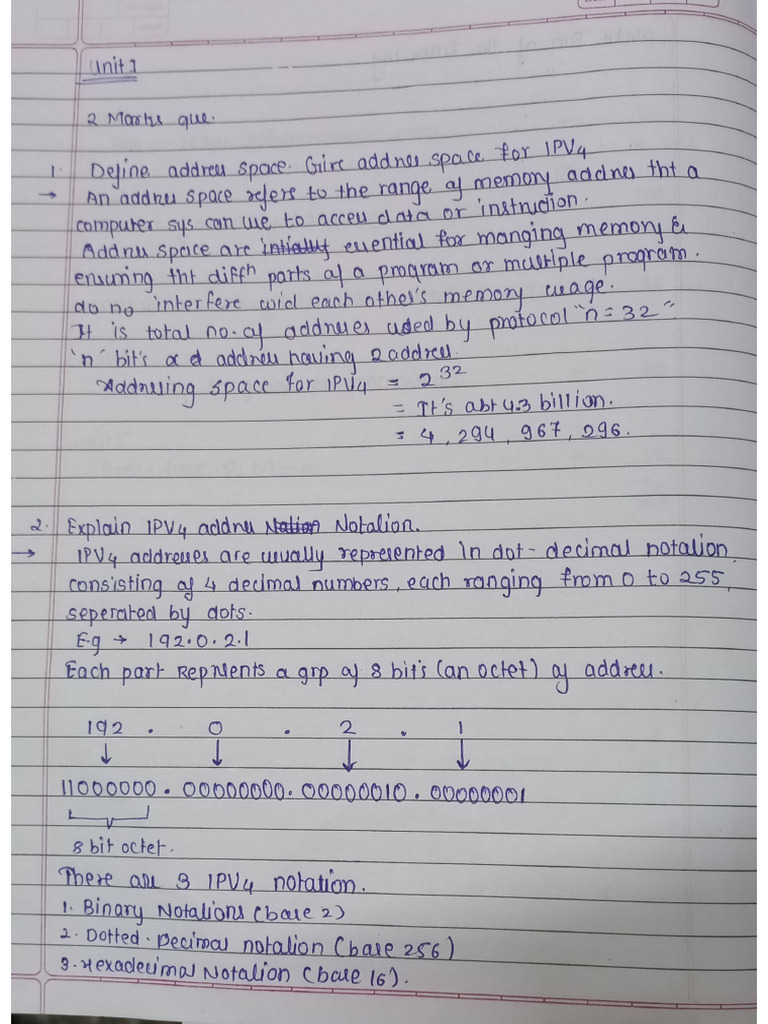 Unit 1
2 Marks que.
1. Define address space. Give address space for IPV4
→ An address space refers to the range of memory address tht a
computer sys can use to access data or instruction.
Address space are intially essential for manging memory &
ensuring tht diffn parts of a program or multiple program.
do no interfere wid each other's memory usage.
It is total no. of addresses used by protocol "n = 32"
'n' bit's address having 2 address.
Addressing space for IPV4 = 2^32
= It's abt 4.3 billion.
= 4, 294, 967, 296.
2. Explain IPV4 address Notation.
→ IPV4 addresses are usually represented in dot-decimal notation
consisting of 4 decimal numbers, each ranging from 0 to 255,
seperated by dots.
E.g → 192.0.2.1
Each part Represents a grp of 8 bit's (an octet) of address.
192 . 0 . 2 . 1
↓ ↓ ↓ ↓
11000000.00000000.00000010.00000001
8 bit octet.
There are 3 IPV4 notation.
1. Binary Notations (base 2)
2. Dotted-Decimal notation (base 256)
3. Hexadecimal Notation (base 16).